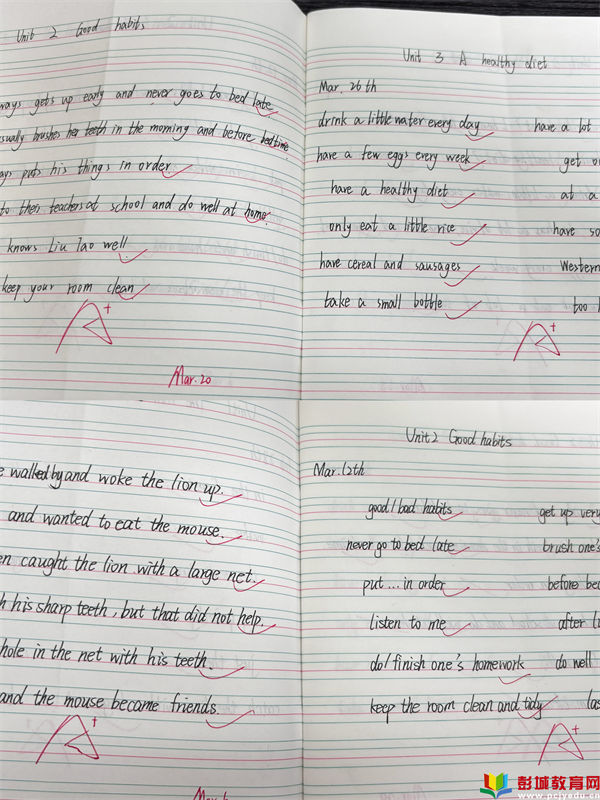 Unit 2 Good habits
ways gets up early and never goes to bed late.
sually brushes her teeth in the morning and before bedtime.
ays puts his things in order
to their teachers at school and do well at home.
knows Liu Tao well
keep your room clean
A+
Mar.20
Unit 3 A healthy diet
Mar. 26th
drink a little water every day have a lot
have a few eggs every week get o
have a healthy diet at a
only eat a little rice have so
have cereal and sausages Western
take a small bottle too
A+
e walked by and woke the lion up.
and wanted to eat the mouse.
en caught the lion with a large net.
h his sharp teeth, but that did not help.
hole in the net with his teeth.
and the mouse became friends.
A+
Unit2 Good habits
Mar.12th
good/bad habits get up very
never go to bed late brush one's
put...in order before be
listen to me after l
do/finish one's homework do well
keep the room clean and tidy las
A+
彭城教育网
www.pcjyedu.cn